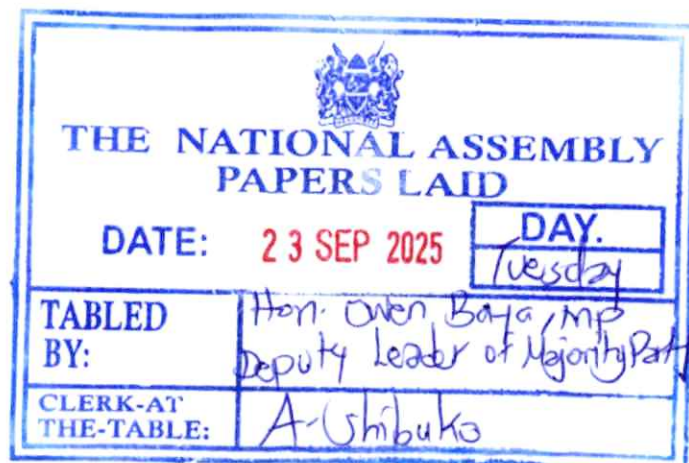 THE NATIONAL ASSEMBLY
PAPERS LAID
DATE: 23 SEP 2025
DAY.
Tuesday
TABLED BY: Hon. Owen Baya, MP
Deputy Leader of Majority Party
CLERK-AT THE-TABLE: A.